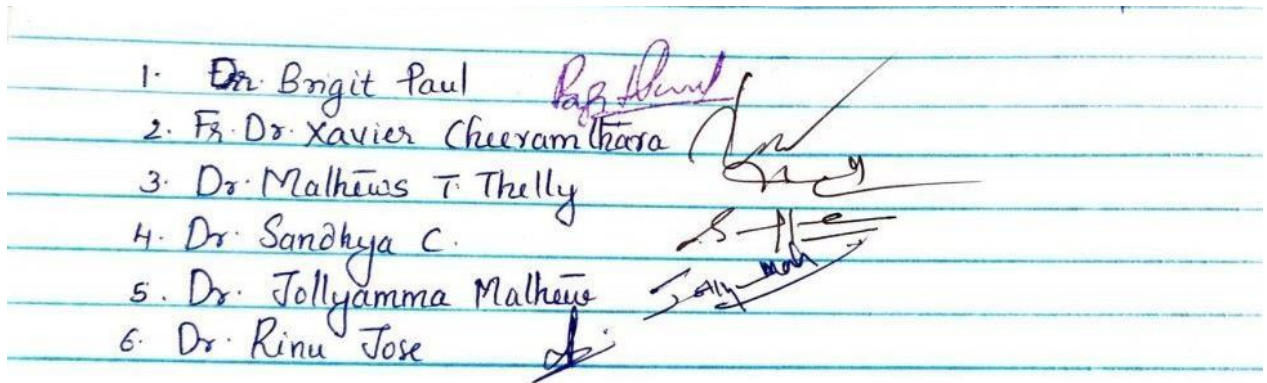 1. Dr. Brigit Paul
2. Fr. Dr. Xavier Cheeramthara
3. Dr. Mathews T. Thelly
4. Dr. Sandhya C.
5. Dr. Jollyamma Mathew
6. Dr. Rinu Jose